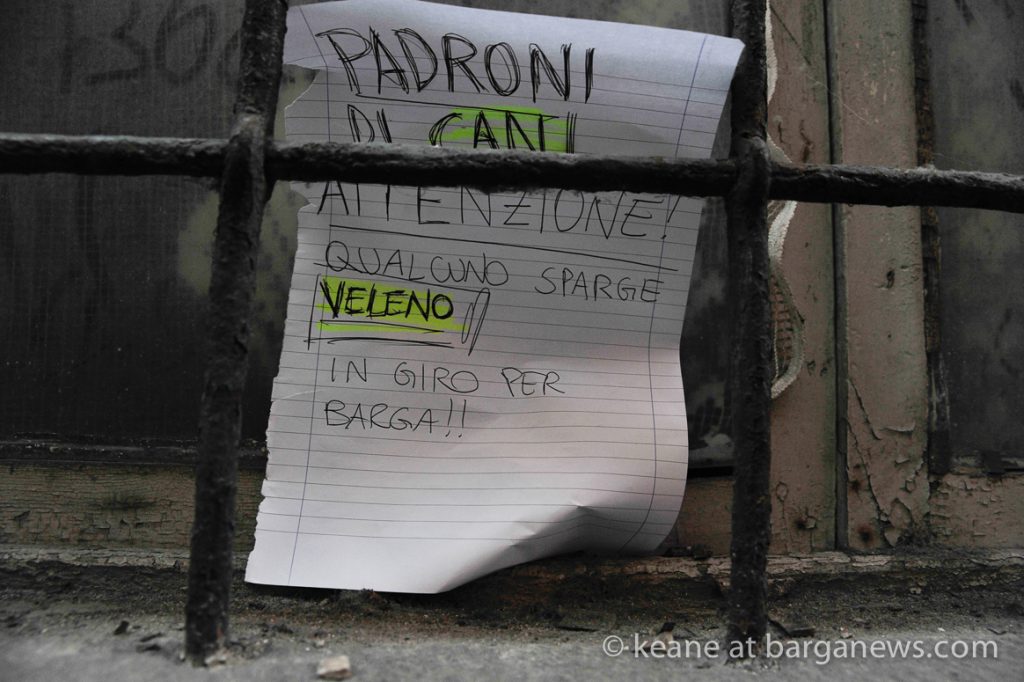 PADRONI
DI CANI
ATTENZIONE!
QUALCUNO SPARGE
VELENO
IN GIRO PER
BARGA!!
© keane at barganews.com